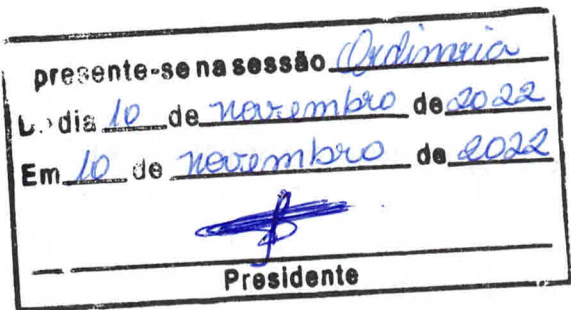 presente-se na sessão Ordinária
dia 10 de novembro de 2022
Em 10 de novembro de 2022
Presidente